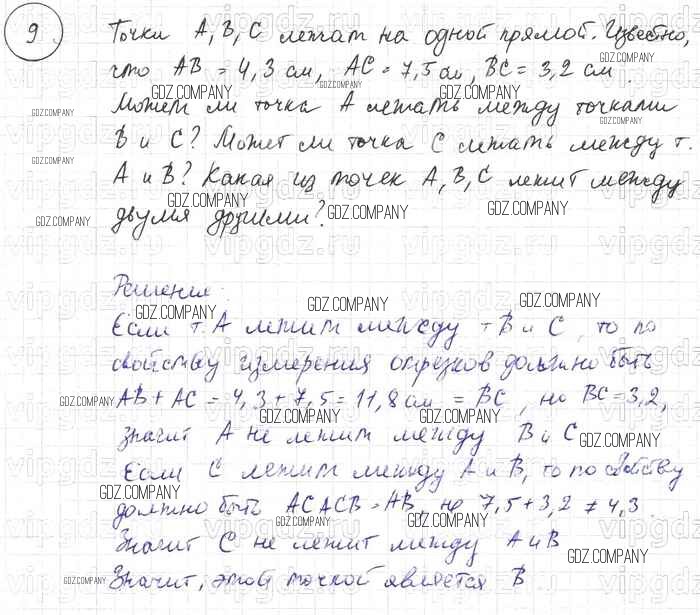 9. Точки А, В, С лежат на одной прямой. Известно,
что АВ = 4,3 см, АС = 7,5 см, ВС = 3,2 см.
Может ли точка А лежать между точками
В и С? Может ли точка С лежать между т.
А и В? Какая из точек А, В, С лежит между
двумя другими?
Решение:
Если т. А лежит между т В и С, то по
свойству измерения отрезков должно быть
АВ + АС = 4,3 + 7,5 = 11,8 см = ВС, но ВС = 3,2,
значит А не лежит между В и С
Если С лежит между А и В, то по свойству
должно быть АС АСВ = АВ, но 7,5 + 3,2 ≠ 4,3.
Значит С не лежит между А и В
Значит, этой точкой является В
GDZ.COMPANY
vipgdz.ru